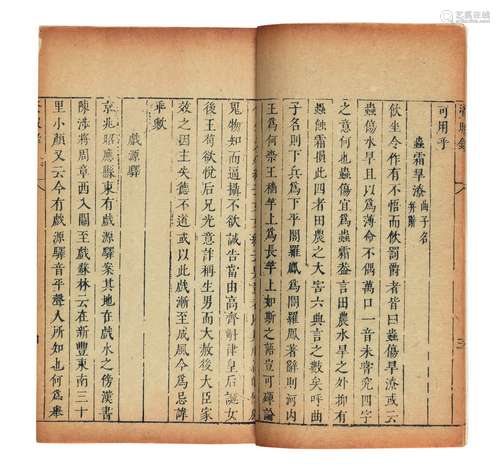 可用乎
蟲霜旱潦 曲子名并附
飲坐令作有不悟而飲罰爵者皆曰蟲傷旱潦或云
蟲傷水旱且以為薄命不偶萬口一音未嘗究四字
之意何也蟲傷宜為蟲霜蓋言田農水旱之外抑有
蟲蝕霜損此四者田農之大害六典言之數矣呼曲
子名則下兵為下平閣羅鳳為閣羅鳳著辭則河内
王為何柰王橋竿上為長竿上如斯之語豈可殫論
鬼物知而逼攝不欲誠告當由高齊斛律皇后誕女
後王苟欲悅后兄光意詐稱生男而大赦後大臣家
效之因主失德不道或以此戲漸至成風今為忌諱
乖歟
戲源驛
京兆昭應縣東有戲源驛案其地在戲水之傍漢書
陳涉將周章西入關至戲蘇林云在新豐東南三十
里小顏又云今有戲源驛音平聲人所知也何為舉